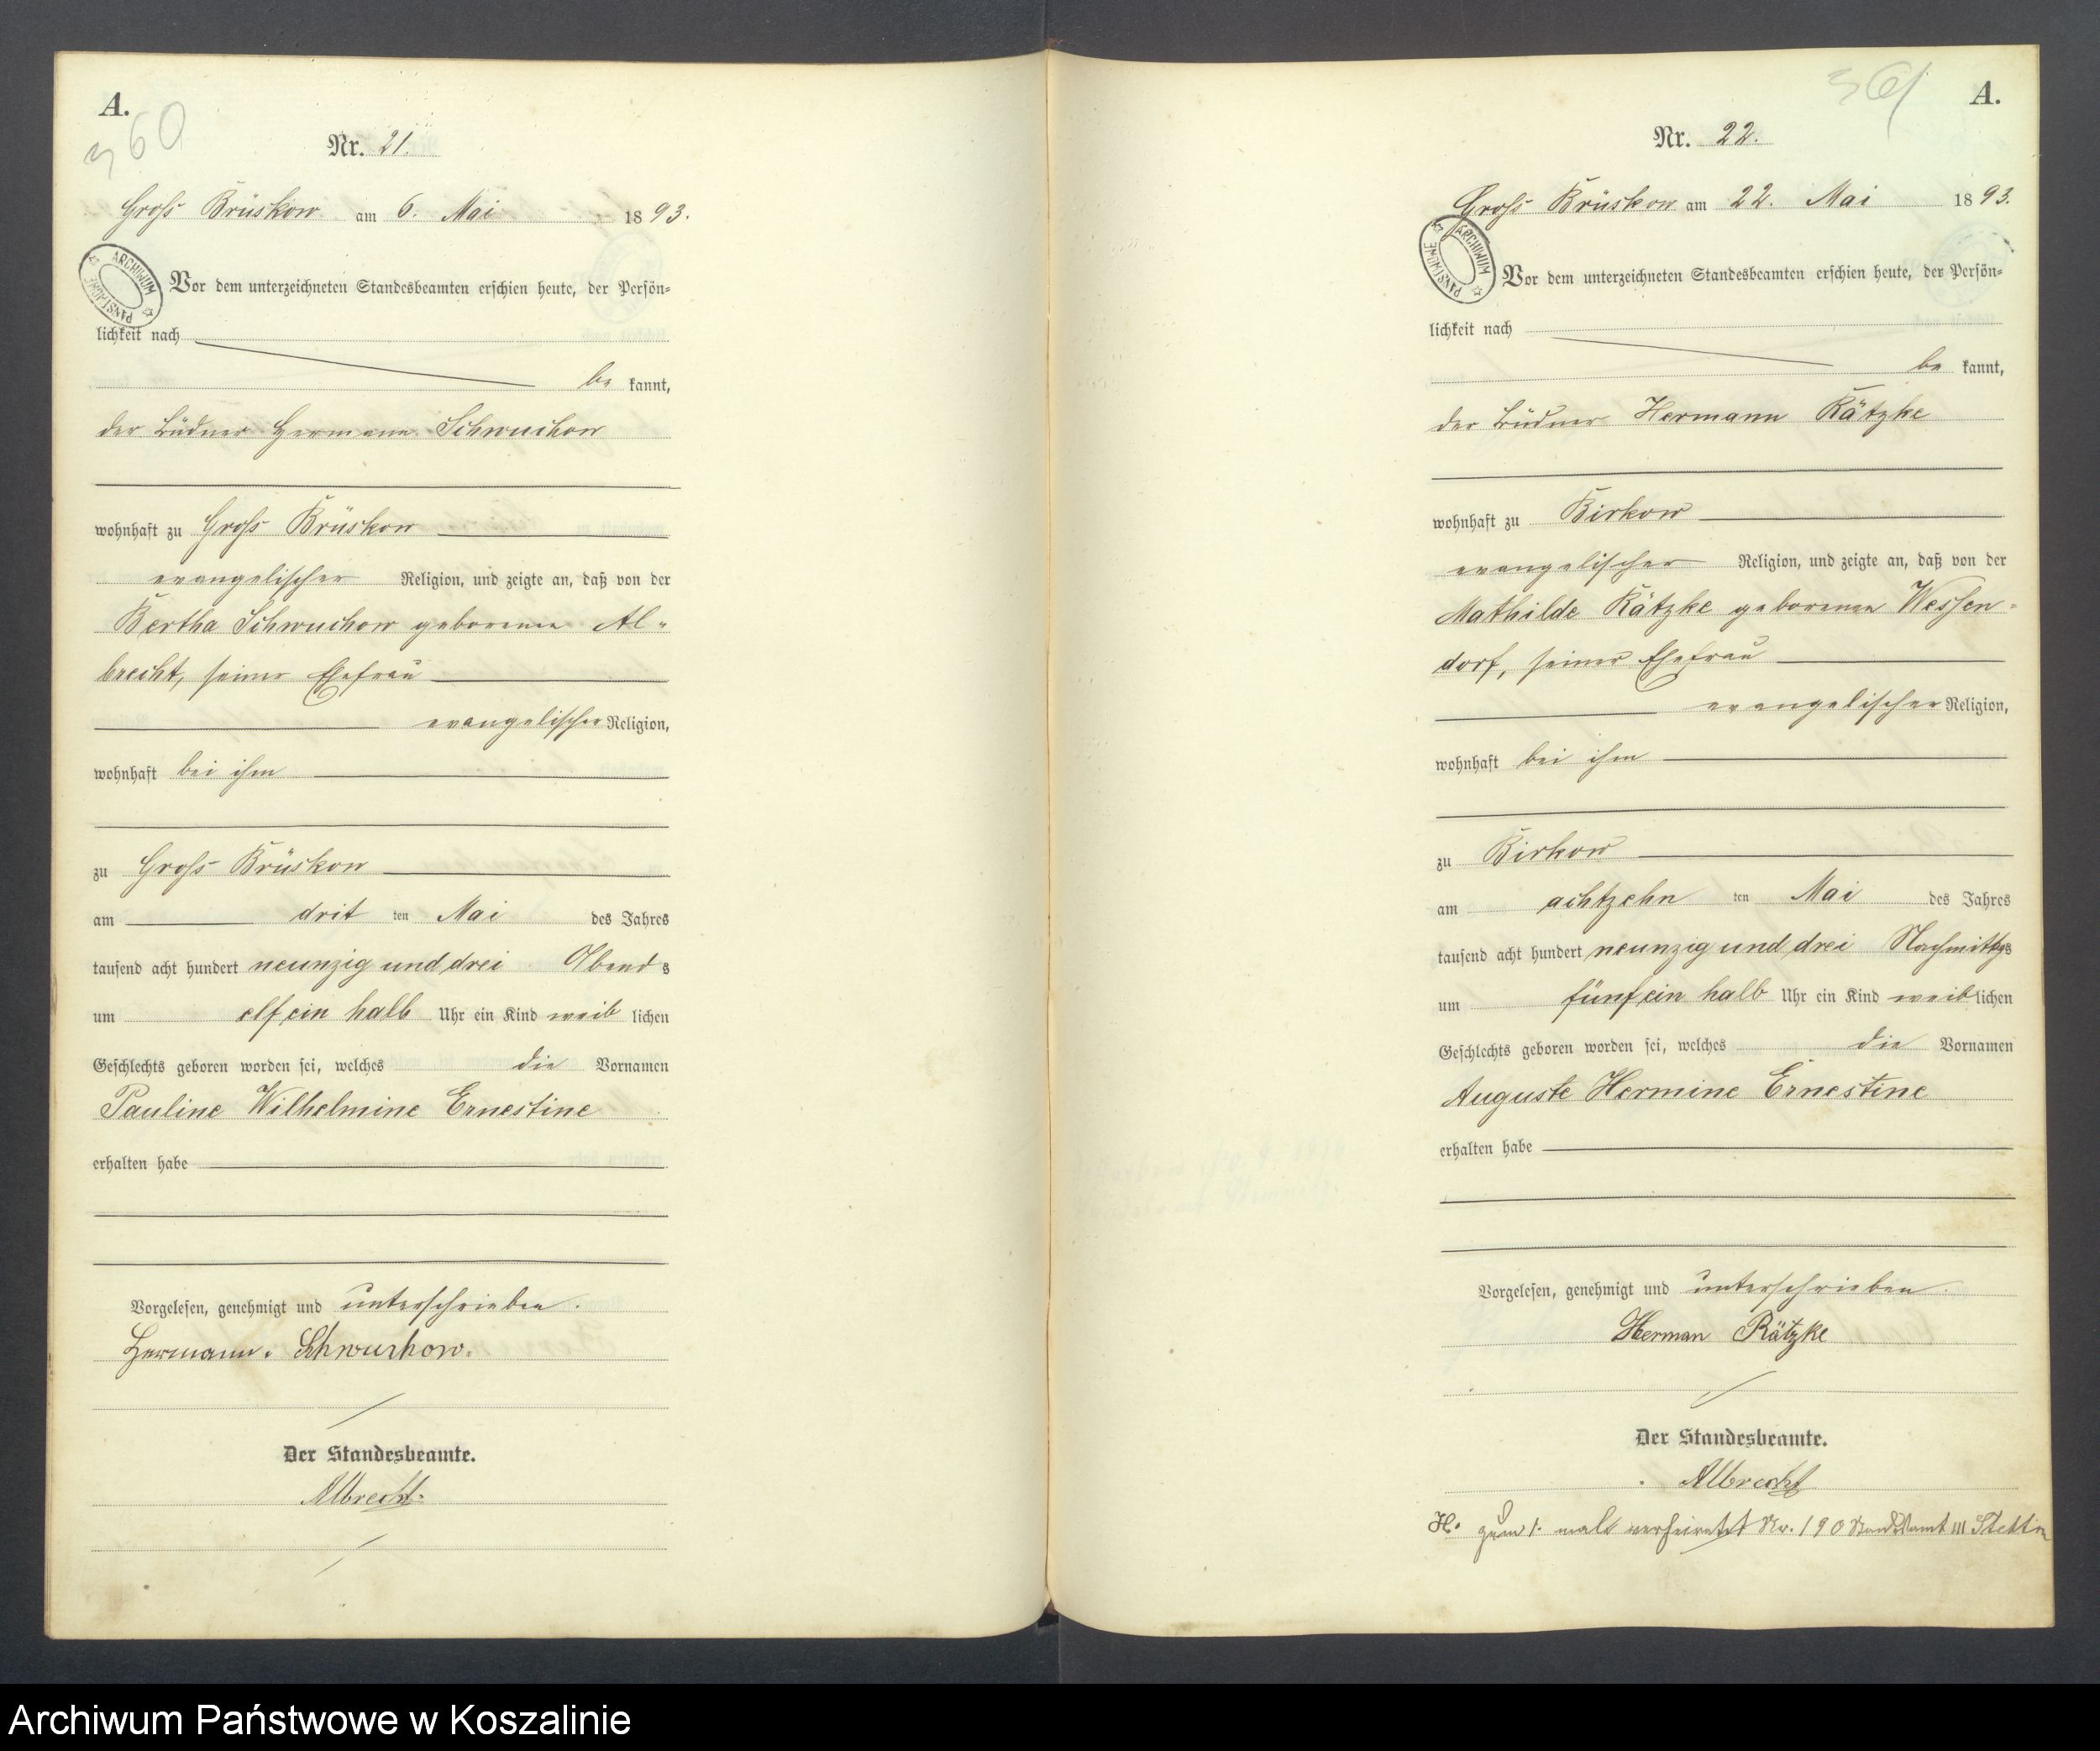 A.
360
Nr. 21.
Groß Brüskow am 6. Mai 1893.
ARCHIWUM PAŃSTWOWE
Vor dem unterzeichneten Standesbeamten erschien heute, der Persön-
lichkeit nach
be kannt,
der Büdner Hermann Schwuchow
wohnhaft zu Groß Brüskow
evangelischer Religion, und zeigte an, daß von der
Bertha Schwuchow geborenen Al-
brecht, seiner Ehefrau
evangelischer Religion,
wohnhaft bei ihm
zu Groß Brüskow
am drit ten Mai des Jahres
tausend acht hundert neunzig und drei Abends
um elf ein halb Uhr ein Kind weib lichen
Geschlechts geboren worden sei, welches die Vornamen
Pauline Wilhelmine Ernestine
erhalten habe
Vorgelesen, genehmigt und unterschrieben.
Hermann. Schwuchow.
Der Standesbeamte.
Albrecht.
361
A.
Nr. 22.
Groß Brüskow am 22. Mai 1893.
ARCHIWUM PAŃSTWOWE
Vor dem unterzeichneten Standesbeamten erschien heute, der Persön-
lichkeit nach
be kannt,
der Büdner Hermann Rätzke
wohnhaft zu Birkow
evangelischer Religion, und zeigte an, daß von der
Mathilde Rätzke geborenen Wessen-
dorf, seiner Ehefrau
evangelischer Religion,
wohnhaft bei ihm
zu Birkow
am achtzehn ten Mai des Jahres
tausend acht hundert neunzig und drei Nachmittgs
um fünf ein halb Uhr ein Kind weiblichen
Geschlechts geboren worden sei, welches die Vornamen
Auguste Hermine Ernestine
erhalten habe
Vorgelesen, genehmigt und unterschrieben.
Herman Rätzke
Der Standesbeamte.
Albrecht
H. zum 1. male verheiratet Nr. 190 Standesamt III Stettin
Archiwum Państwowe w Koszalinie